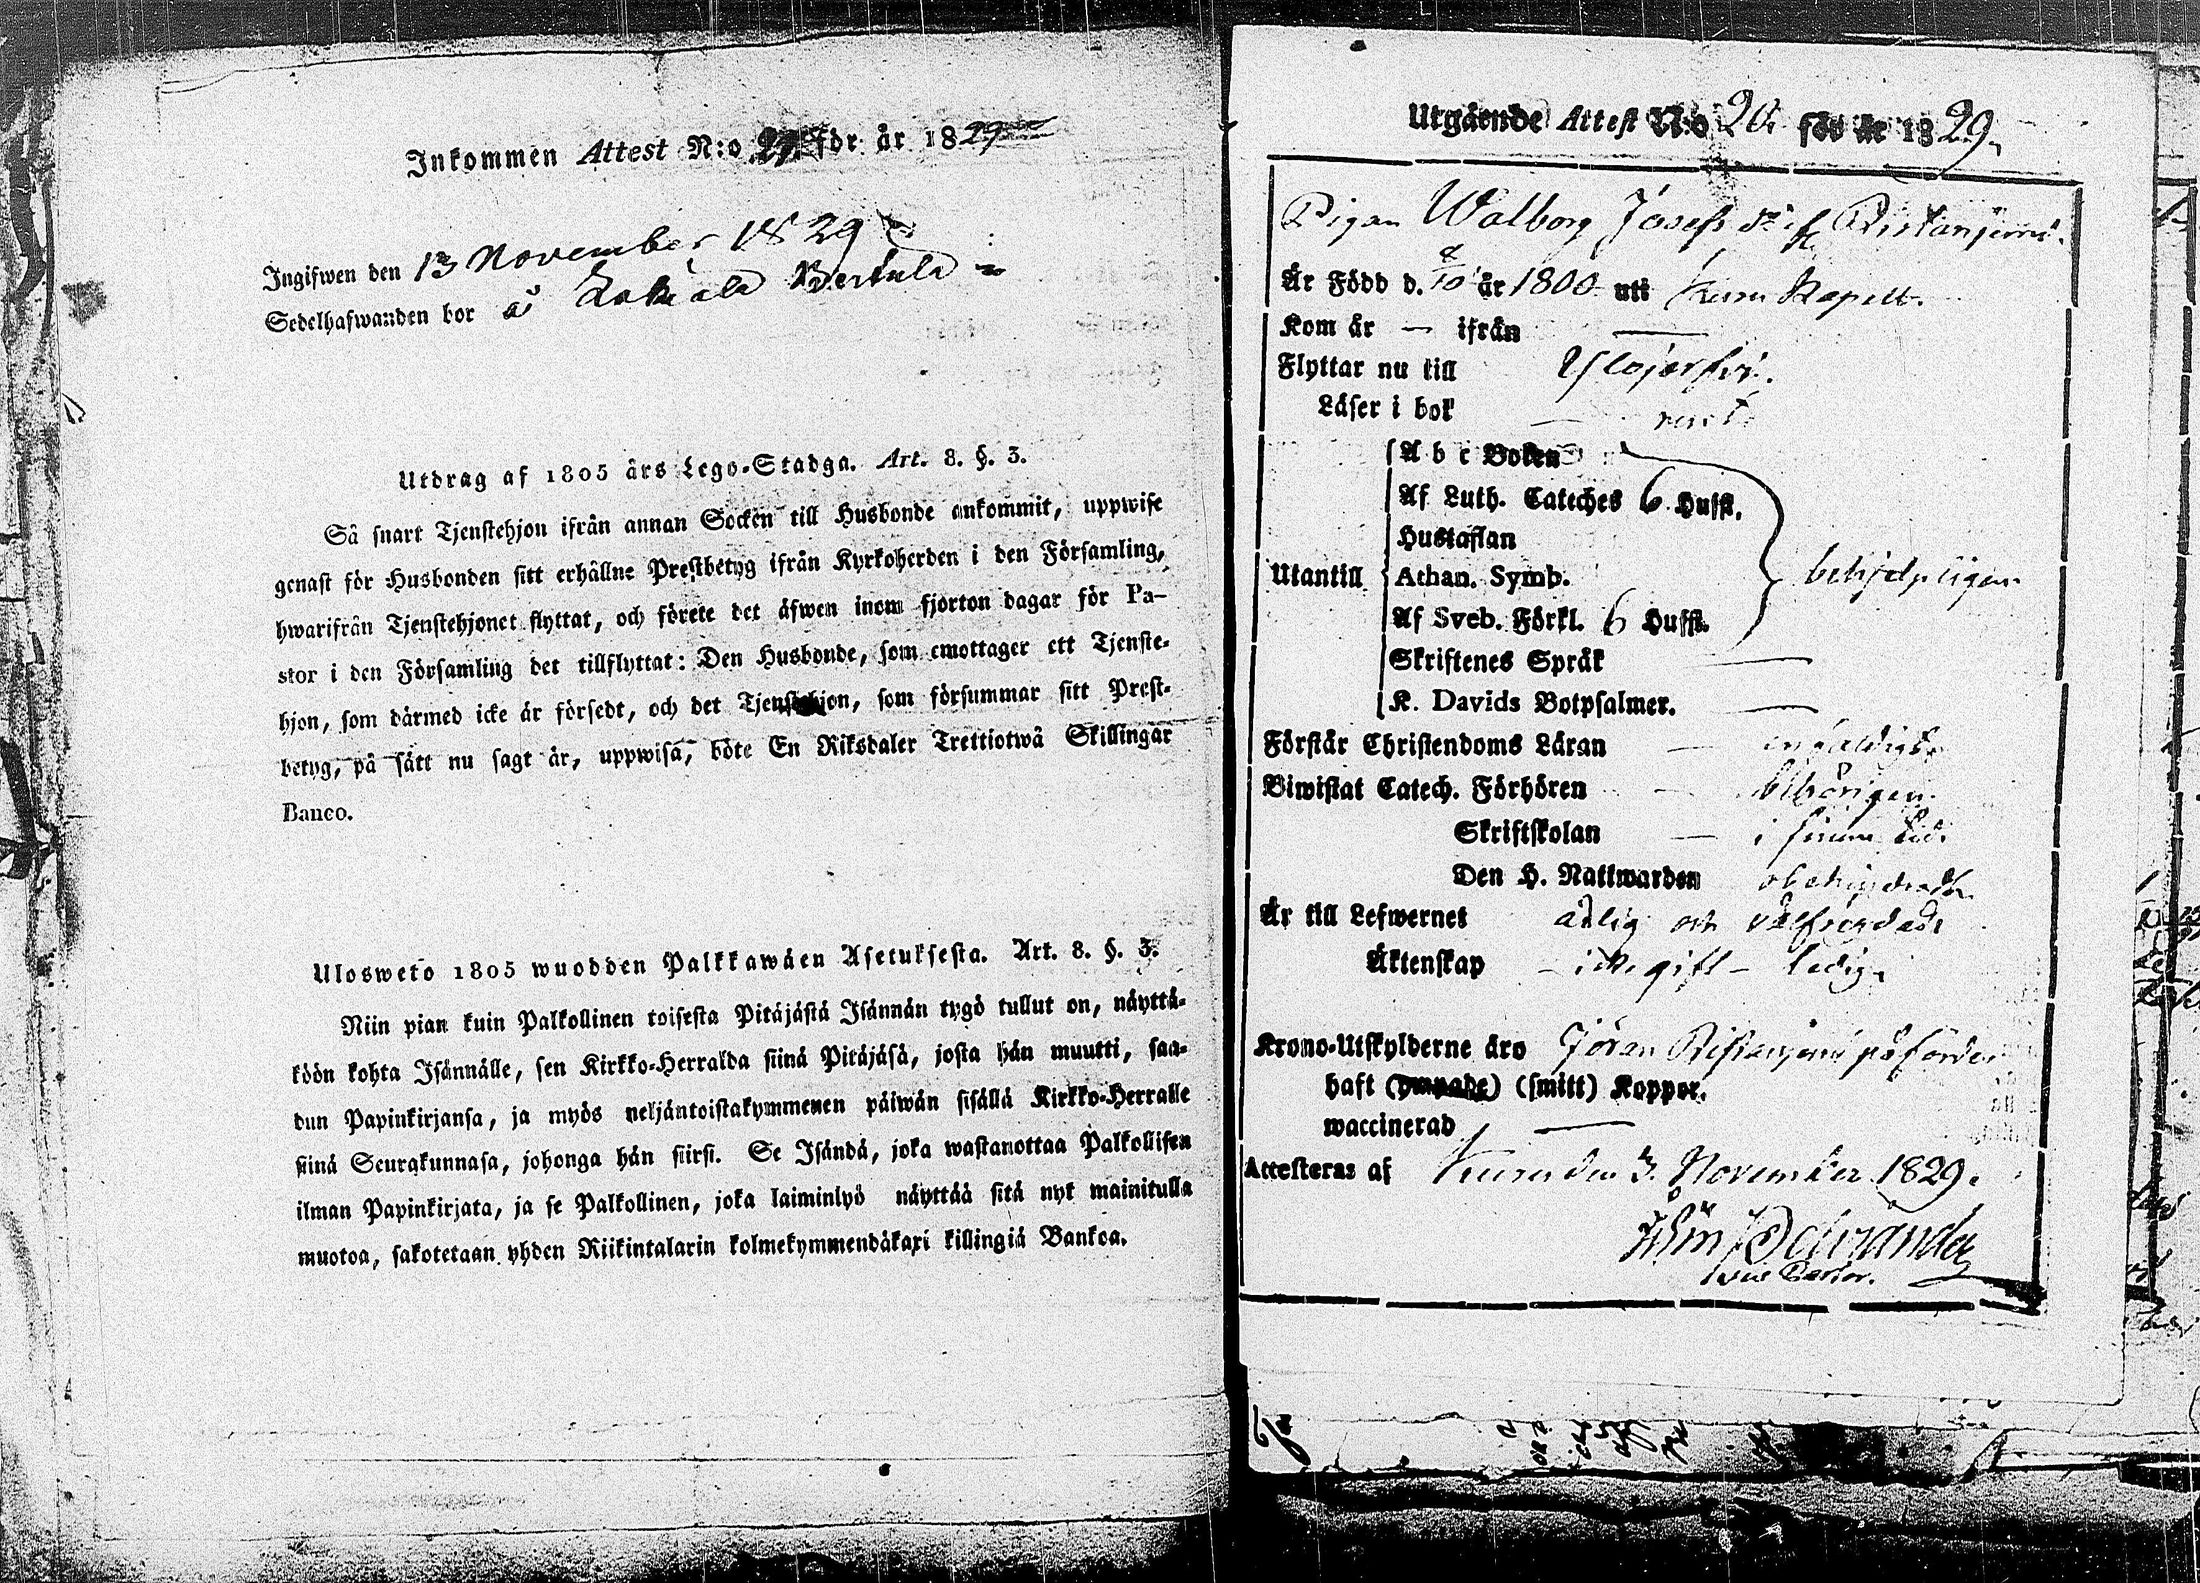 Inkommen Attest N:o 29 för år 1829
Ingifwen den 13 November 1829
Sedelhafwanden bor å Lakiala Bertula
Utdrag af 1805 års Lego-Stadga. Art. 8. §. 3.
Så snart Tjenstehjon ifrån annan Socken till Husbonde ankommit, uppwise
genast för Husbonden sitt erhållne Prestbetyg ifrån Kyrkoherden i den Församling,
hwarifrån Tjenstehjonet flyttat, och förete det äfwen inom fjorton dagar för Pa-
stor i den Församling det tillflyttat: Den Husbonde, som emottager ett Tjenste-
hjon, som därmed icke är försedt, och det Tjenstehjon, som försummar sitt Prest-
betyg, på sätt nu sagt är, uppwisa, böte En Riksdaler Trettiotwå Skillingar
Banco.
Ulosweto 1805 wuodden Palkkawäen Asetuksesta. Art. 8. §. 3.
Niin pian kuin Palkollinen toisesta Pitäjästä Isännän tygö tullut on, näyttä-
köön kohta Isännälle, sen Kirkko-Herralda siinä Pitäjäsä, josta hän muutti, saa-
dun Papinkirjansa, ja myös neljäntoistakymmenen päiwän sisällä Kirkko-Herralle
siinä Seurakunnasa, johonga hän siirsi. Se Isändä, joka wastanottaa Palkollisen
ilman Papinkirjata, ja se Palkollinen, joka laiminlyö näyttää sitä nyt mainitulla
muotoa, sakotetaan yhden Riikintalarin kolmekymmendäkaxi killingiä Bankoa.
Utgående Attest N:o 20. för år 1829.
Pigan Walborg Josefs dr fr. Ristanjemi.
Är Född d. /10 år 1800 uti Kuru Kapell.
Kom år — ifrån —
Flyttar nu till Ylöjerfvi.
Läser i bok — rent
A b c Boken
Af Luth. Cateches 6 Hufst.
Hustaflan
Utantill Athan. Symb. behjelpligen
Af Sveb. Förkl. 6 Hufst.
Skriftenes Språk —
K. Davids Botpsalmer. —
Förstår Christendoms Läran — enfaldigt
Biwistat Catech. Förhören — behörigen
Skriftskolan — i sinom tid
Den H. Nattwarden obehindrad
Är till Lefwernet ärlig och välfrejdad
Äktenskap — icke gift — ledig.
Krono-Utskylderne äro Göran Ristanjemi påförde
haft (ympade) (smitt) Koppor.
waccinerad —
Attesteras af Kuru den 3. November 1829.
Vice Pastor.